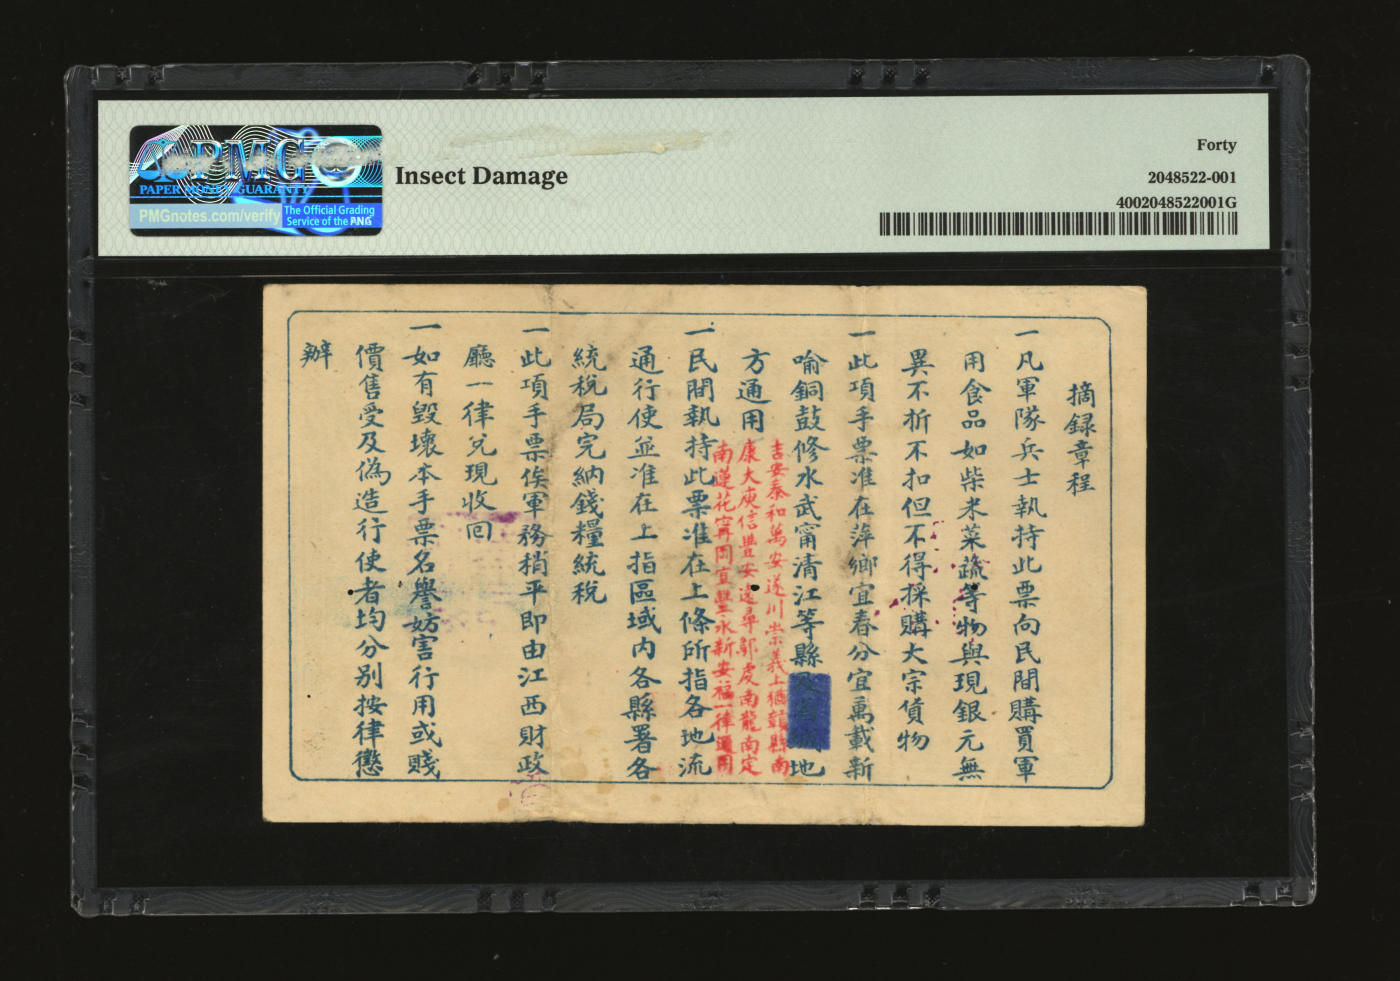 PMG
PAPER MONEY GUARANTY
PMGnotes.com/verify
The Official Grading
Service of the PNG
Insect Damage
Forty
2048522-001
4002048522001G
摘録章程
一凡軍隊兵士執持此票向民間購買軍
用食品如柴米菜蔬等物與現銀元無
異不折不扣但不得採購大宗貨物
一此項手票准在萍鄉宜春分宜萬載新
喻銅鼓修水武甯清江等縣
地
方通用
吉安泰和萬安遂川崇義上猶贛縣南
康大庾信豐安遠尋鄔虔南龍南定
南蓮花甯岡宜豐永新安福一律通用
一民間執持此票准在上條所指各地流
通行使並准在上指區域内各縣署各
統稅局完納錢糧統税
一此項手票俟軍務稍平即由江西財政
廳一律兌現收回
一如有毀壞本手票名譽妨害行用或賤
價售受及偽造行使者均分別按律懲
辦